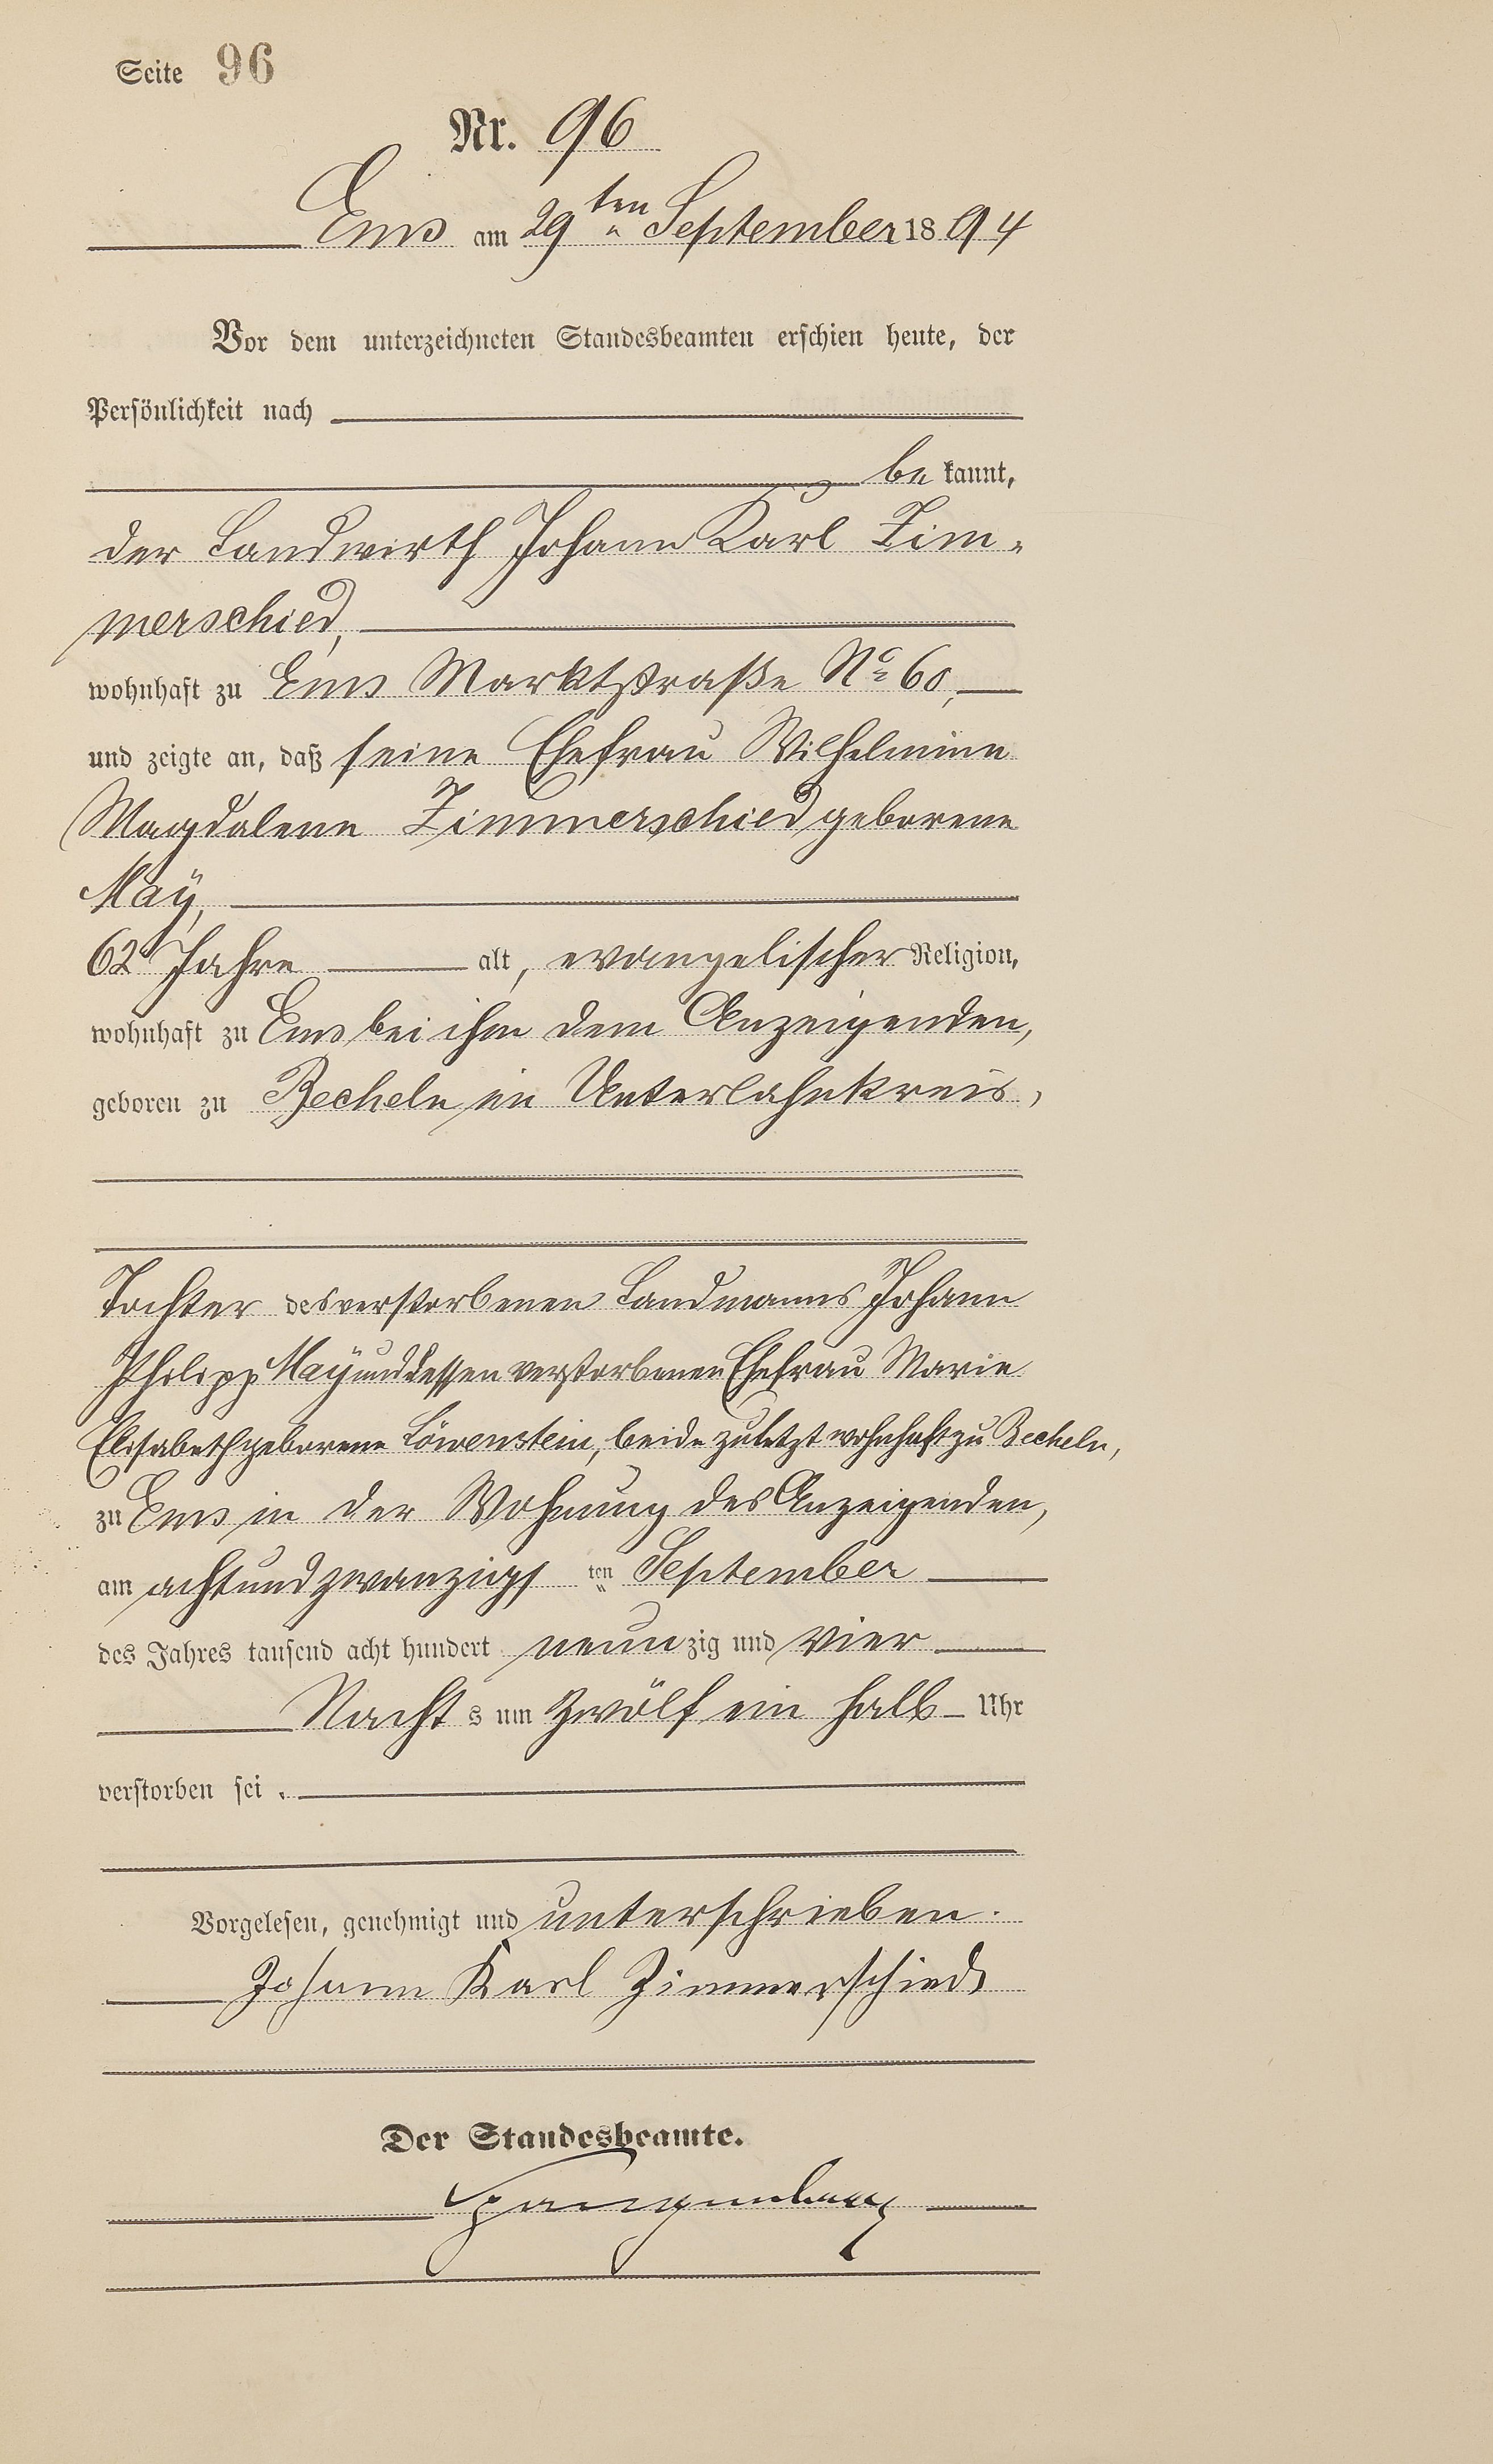 Seite 96
Nr. 96
Ems am 29ten September 1894
Vor dem unterzeichneten Standesbeamten erschien heute, der
Persönlichkeit nach
be kannt,
der Landwirth Johann Karl Zim-
merschied,
wohnhaft zu Ems Marktstraße No 60,
und zeigte an, daß seine Ehefrau Wilhelmine
Magdalene Zimmerschied geborene
Maÿ,
62 Jahre alt, evangelischer Religion,
wohnhaft zu Ems bei ihm dem Anzeigenden,
geboren zu Becheln im Unterlahnkreis,
Tochter des verstorbenen Landmanns Johann
Philipp Maÿ und dessen verstorbenen Ehefrau Marie
Elisabeth geborene Löwenstein, beide zuletzt wohnhaft zu Becheln,
zu Ems in der Wohnung des Anzeigenden,
am achtundzwanzigs ten September
des Jahres tausend acht hundert neun zig und vier
Nacht s um zwölf ein halb Uhr
verstorben sei.
Vorgelesen, genehmigt und unterschrieben.
Johann Karl Zimmerschied
Der Standesbeamte.